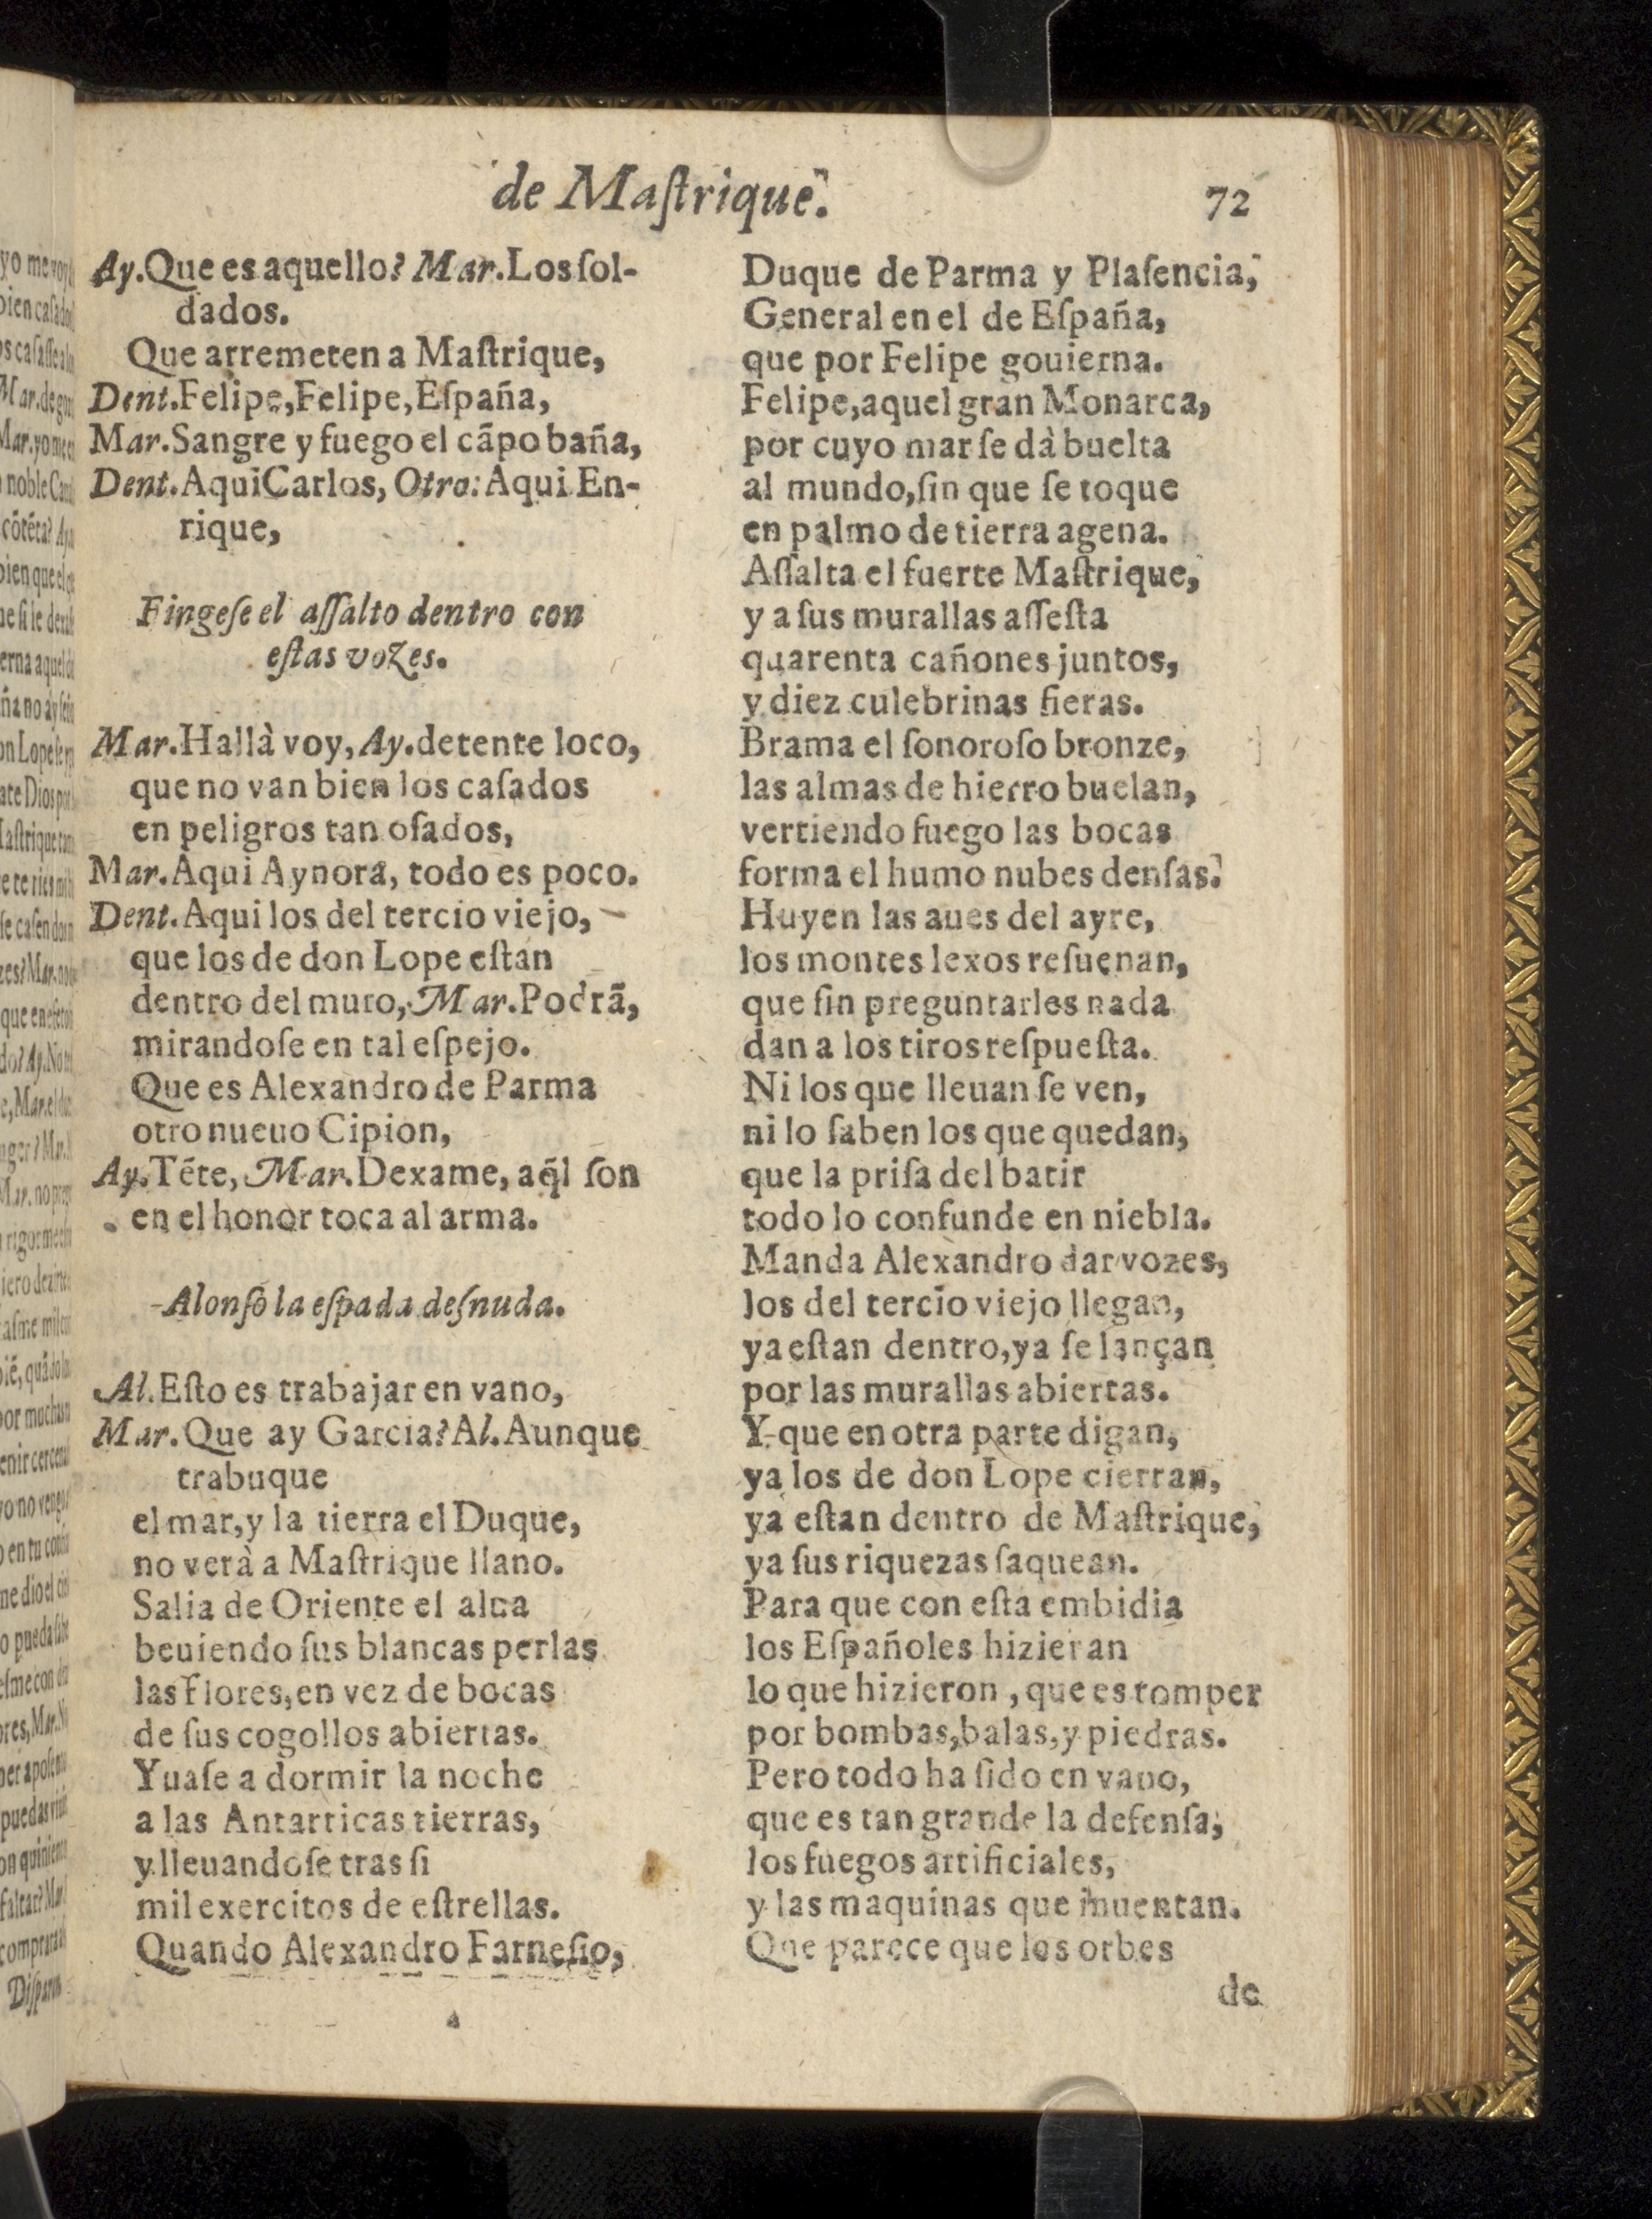 de Maſtrique.
72
Ay.Que es aquello? Mar.Los ſol-
dados.
Que arremeten a Maſtrique,
Dent.Felipe,Felipe,Eſpaña,
Mar.Sangre y fuego el cãpo baña,
Dent.Aqui Carlos, Otro: Aqui En-
rique,
Fingeſe el aſſalto dentro con
eſtas vozes.
Mar.Hallà voy, Ay.detente loco,
que no van bien los caſados
en peligros tan oſados,
Mar.Aqui Aynora, todo es poco.
Dent.Aqui los del tercio viejo,
que los de don Lope eſtan
dentro del muro, Mar.Podrã,
mirandoſe en tal eſpejo.
Que es Alexandro de Parma
otro nueuo Cipion,
Ay.Tẽte, Mar.Dexame, aq̃l ſon
en el honor toca al arma.
Alonſo la eſpada deſnuda.
Al.Eſto es trabajar en vano,
Mar.Que ay Garcia? Al.Aunque
trabuque
el mar,y la tierra el Duque,
no verà a Maſtrique llano.
Salia de Oriente el alua
beuiendo ſus blancas perlas
las flores,en vez de bocas
de ſus cogollos abiertas.
Yuaſe a dormir la noche
a las Antarticas tierras,
y lleuandoſe tras ſi
mil exercitos de eſtrellas.
Quando Alexandro Farneſio,
Duque de Parma y Plaſencia,
General en el de Eſpaña,
que por Felipe gouierna.
Felipe,aquel gran Monarca,
por cuyo mar ſe dà buelta
al mundo,ſin que ſe toque
en palmo de tierra agena.
Aſſalta el fuerte Maſtrique,
y a ſus murallas aſſeſta
quarenta cañones juntos,
y diez culebrinas fieras.
Brama el ſonoroſo bronze,
las almas de hierro buelan,
vertiendo fuego las bocas
forma el humo nubes denſas.
Huyen las aues del ayre,
los montes lexos reſuenan,
que ſin preguntarles nada
dan a los tiros reſpueſta.
Ni los que lleuan ſe ven,
ni lo ſaben los que quedan,
que la priſa del batir
todo lo confunde en niebla.
Manda Alexandro dar vozes,
los del tercio viejo llegan,
ya eſtan dentro,ya ſe lançan
por las murallas abiertas.
Y que en otra parte digan,
ya los de don Lope cierran,
ya eſtan dentro de Maſtrique,
ya ſus riquezas ſaquean.
Para que con eſta embidia
los Eſpañoles hizieran
lo que hizieron , que es romper
por bombas,balas,y piedras.
Pero todo ha ſido en vano,
que es tan grande la defenſa,
los fuegos artificiales,
y las maquinas que inuentan.
Que parece que los orbes
de